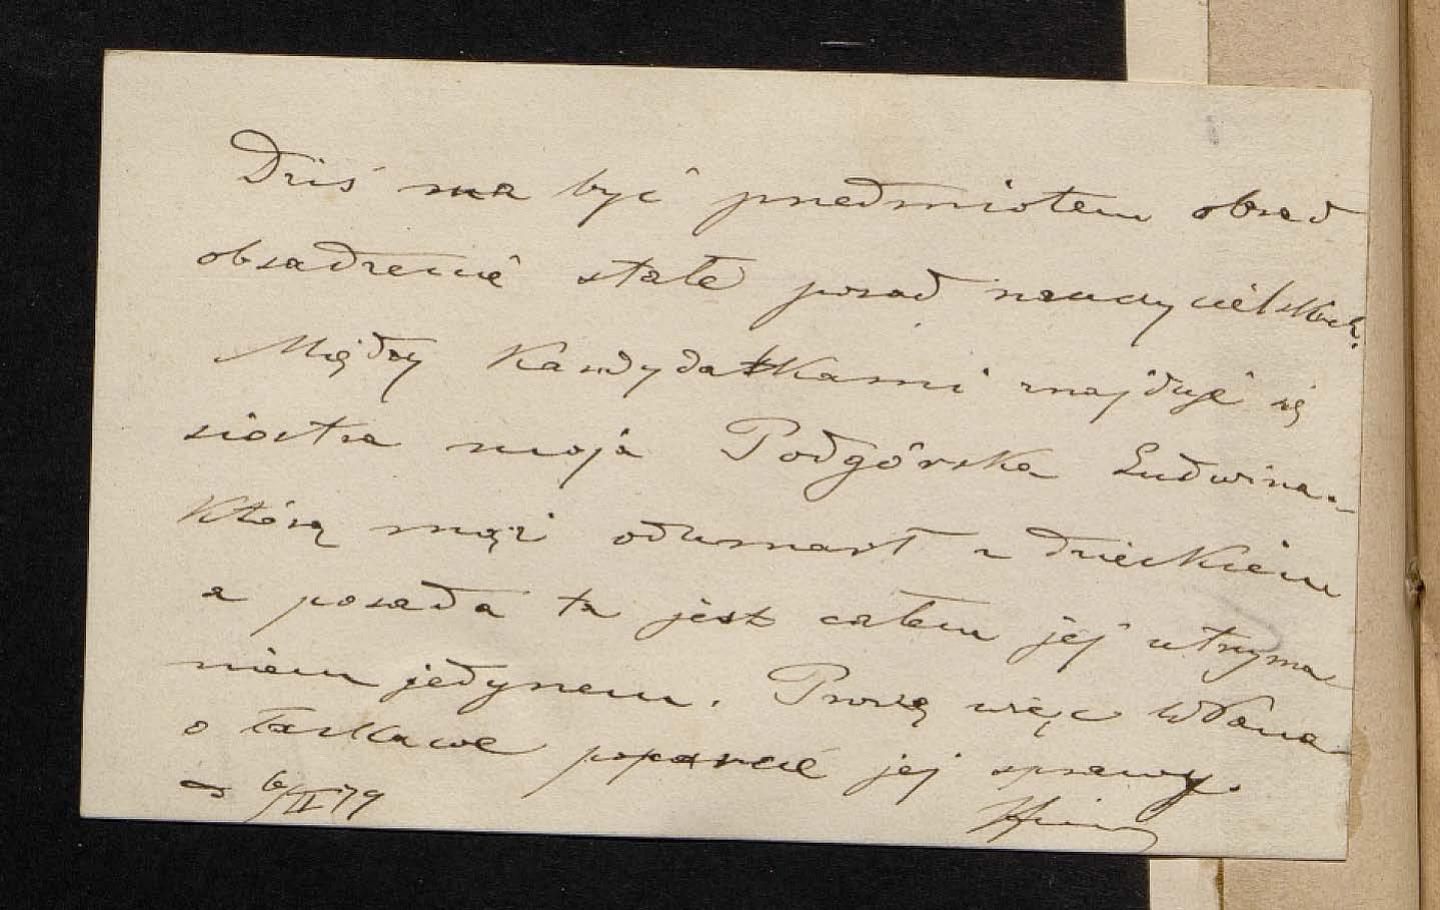 Dziś ma być przedmiotem obrad
obsadzenie stałe posad nauczycielskich.
Między kandydatkami znajduje się
siostra moja Podgórska Ludwina
którą mąż odumarł z dzieckiem
a posada ta jest całem jej utrzyma
niem jedynem. Proszę więc WPana
o łaskawe poparcie jej sprawy.
6/II 79